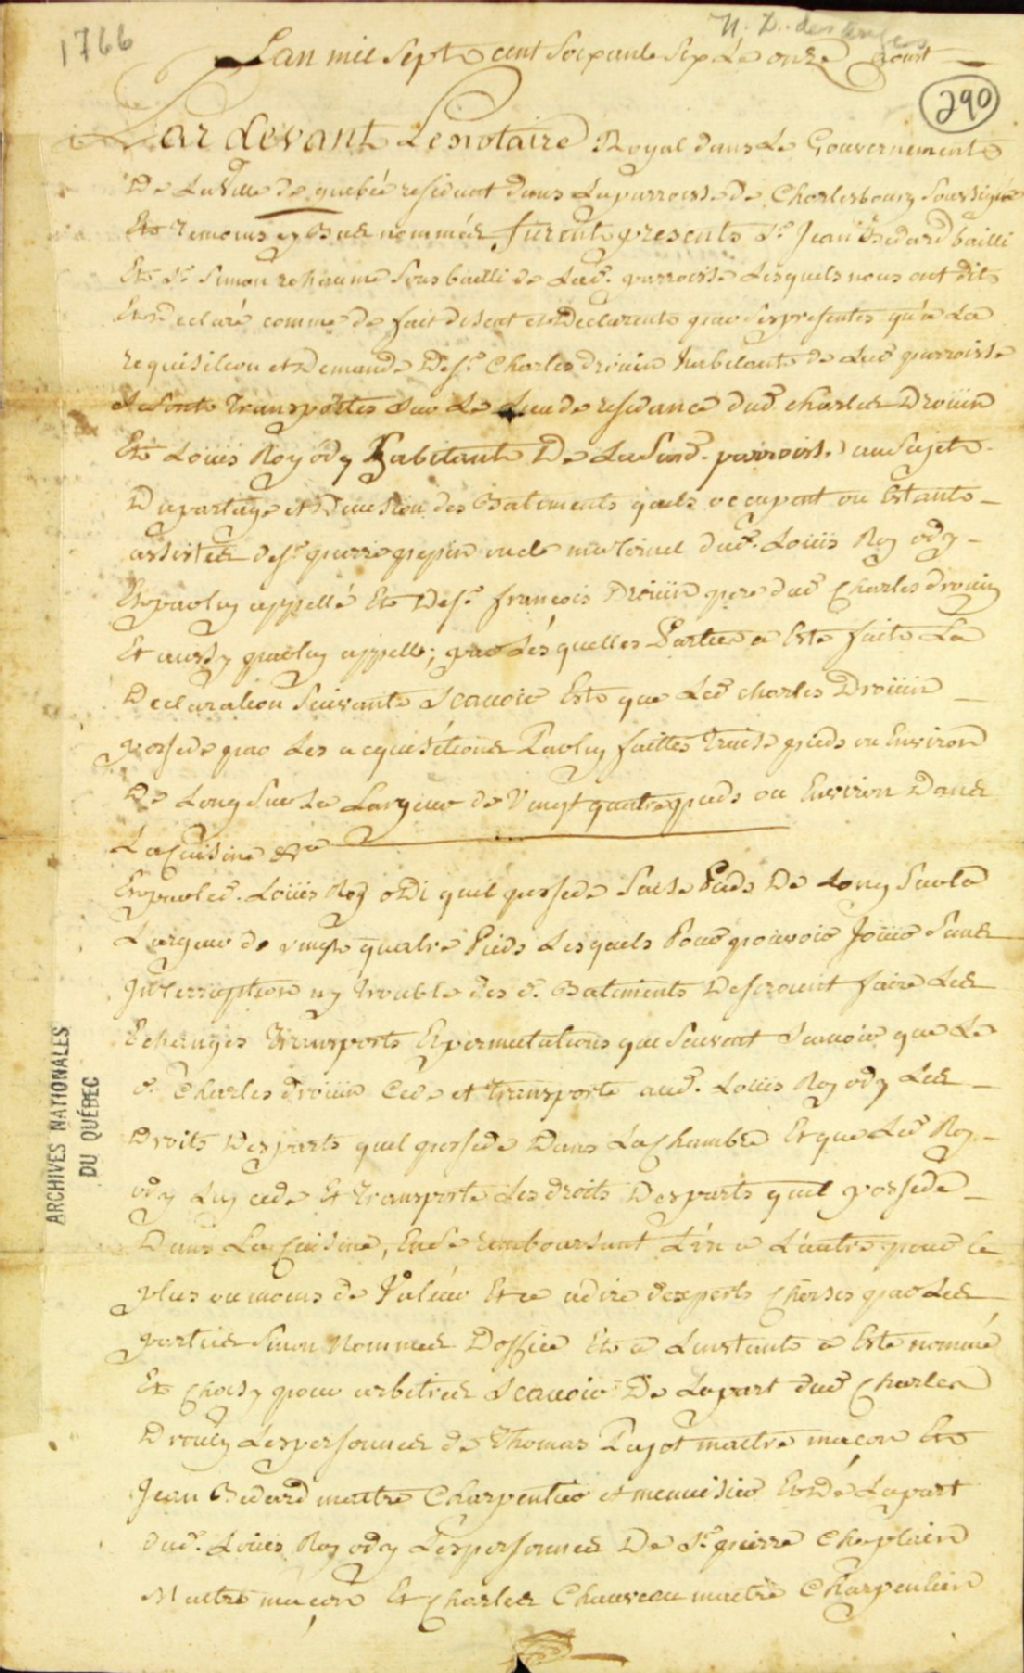 1766
N. D. des anges
Lan mil Sept cent Soixante Six Le onze aoust
290
Par devant Le notaire Royal dans Le Gouvernement
De La Ville de quebec residant dans La parroisse de Charlesbourg Soussigné
Et temoins cy bas nommés furent presents Sr. Jean Bedard bailli
Et Sr. Simon reheaume Sous bailli de Lad. parroisse Lesquels nous ont dit
Et declaré comme de fait disent et Declarent par Ses presentes qu'a La
requisition et Demande De Sr. Charles drouin habitant de Lad parroisse
Se Sont transportés Sur Le Lieu de residance dud charles Droüin
Et Loüis Roy ody habitant De La Susd. parroisse au Sujet
Du partage et Division des Batiments quils occupent ou Estants
assistés de Sr. pierre pepin oncle maternel dud. Loüis Roy ody
Et par luy appellé Et De Sr. francois Droüin pere dud Charles droüin
Et aussy par luy appellé; par Lesquelles Parties a Esté faite La
Declaration Suivante Scauoir Est que Led charles Droüin
possede par Les acquisitions Par luy faittes Treise pieds ou Environ
De Long Sur La Largeur de Vingt quatre pieds ou Environ Dans
La Cuisine &a
Et par led. Loüis Roy odi quil possede Saise Pieds De Long Sur la
Largeur de vingt quatre Pieds Lesquels Pour pouvoir Joüir Sans
Interruption ny trouble des d. Batiments Desirant faire Les
Echanges Transports Et permutations que Suivent Scauoir que Le
d. Charles droüin Cede et transporte aud. Loüis Roy ody Les
Droits Des parts quil possede Dans La Chambre Et que Led Roy
ody Luy cede Et transporte Les droits Des parts quil possede
Dans La Cuisine, En Se remboursant L'un a L'autre pour le
plus ou moins de Valeur Et ce a dire d'experts Choises par Les
parties Sinon Nommés D'office Et a Linstant a Esté nommé
Et Choisy pour arbitres Scauoir De La part dud Charles
Drouin Les personnes de Thomas Pajot maitre macon Et
Jean Bedard maitre Charpentier et menuisier Et De La part
dud. Loüis Roy ody Les personnes De Sr. pierre Chaplain
Maitre macon Et Charles Chauveau maitre Charpentier
ARCHIVES NATIONALES
DU QUÉBEC